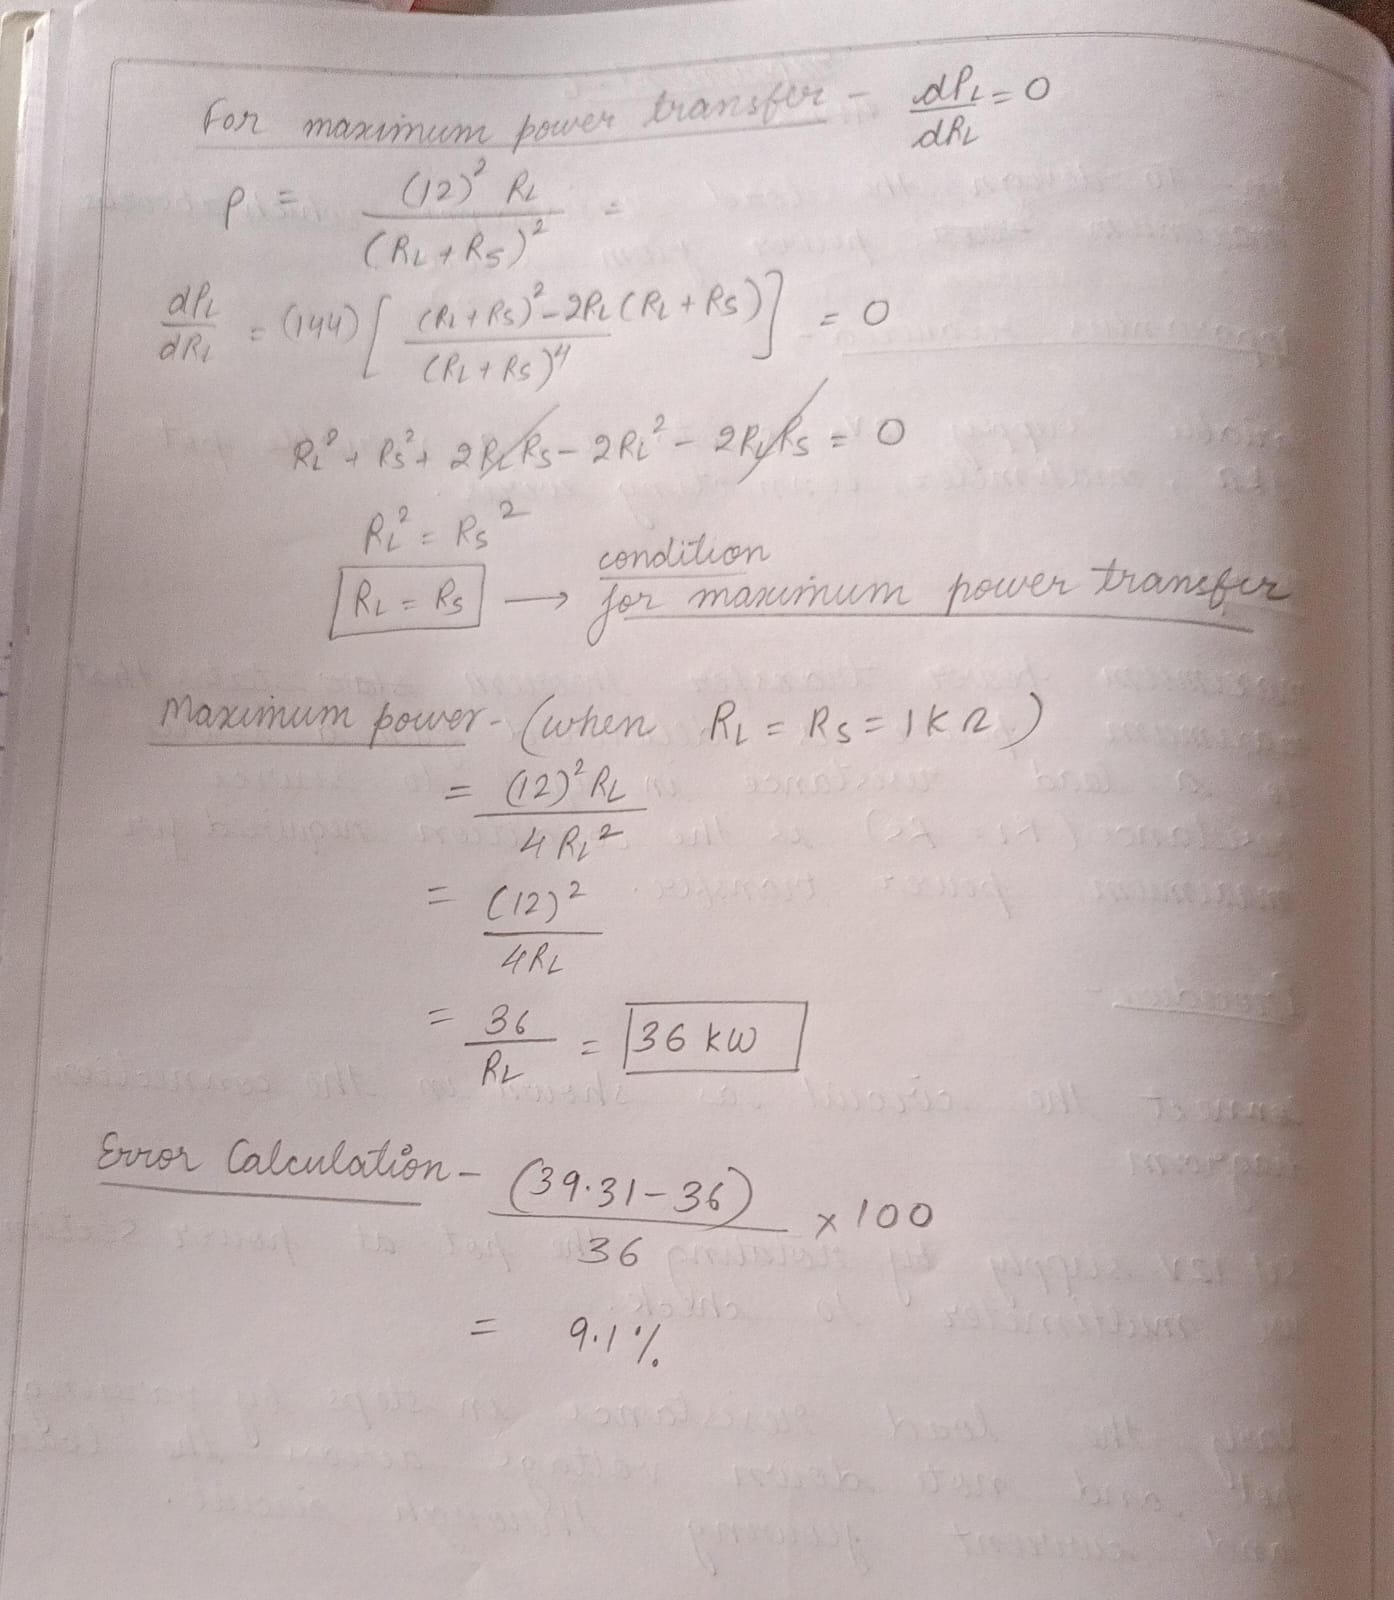 For maximum power transfer - dPL/dRL = 0
P = (12)² RL / (RL + RS)² =
dPL/dRL = (144) [ (RL + RS)² - 2RL (RL + RS) / (RL + RS)⁴ ] = 0
RL² + RS² + 2RLRS - 2RL² - 2RLRS = 0
RL² = RS²
RL = RS → condition for maximum power transfer
Maximum power - (when RL = RS = 1kΩ)
= (12)² RL / 4RL²
= (12)² / 4RL
= 36 / RL = 36 kW
Error Calculation - (39.31 - 36) / 36 × 100
= 9.1 %